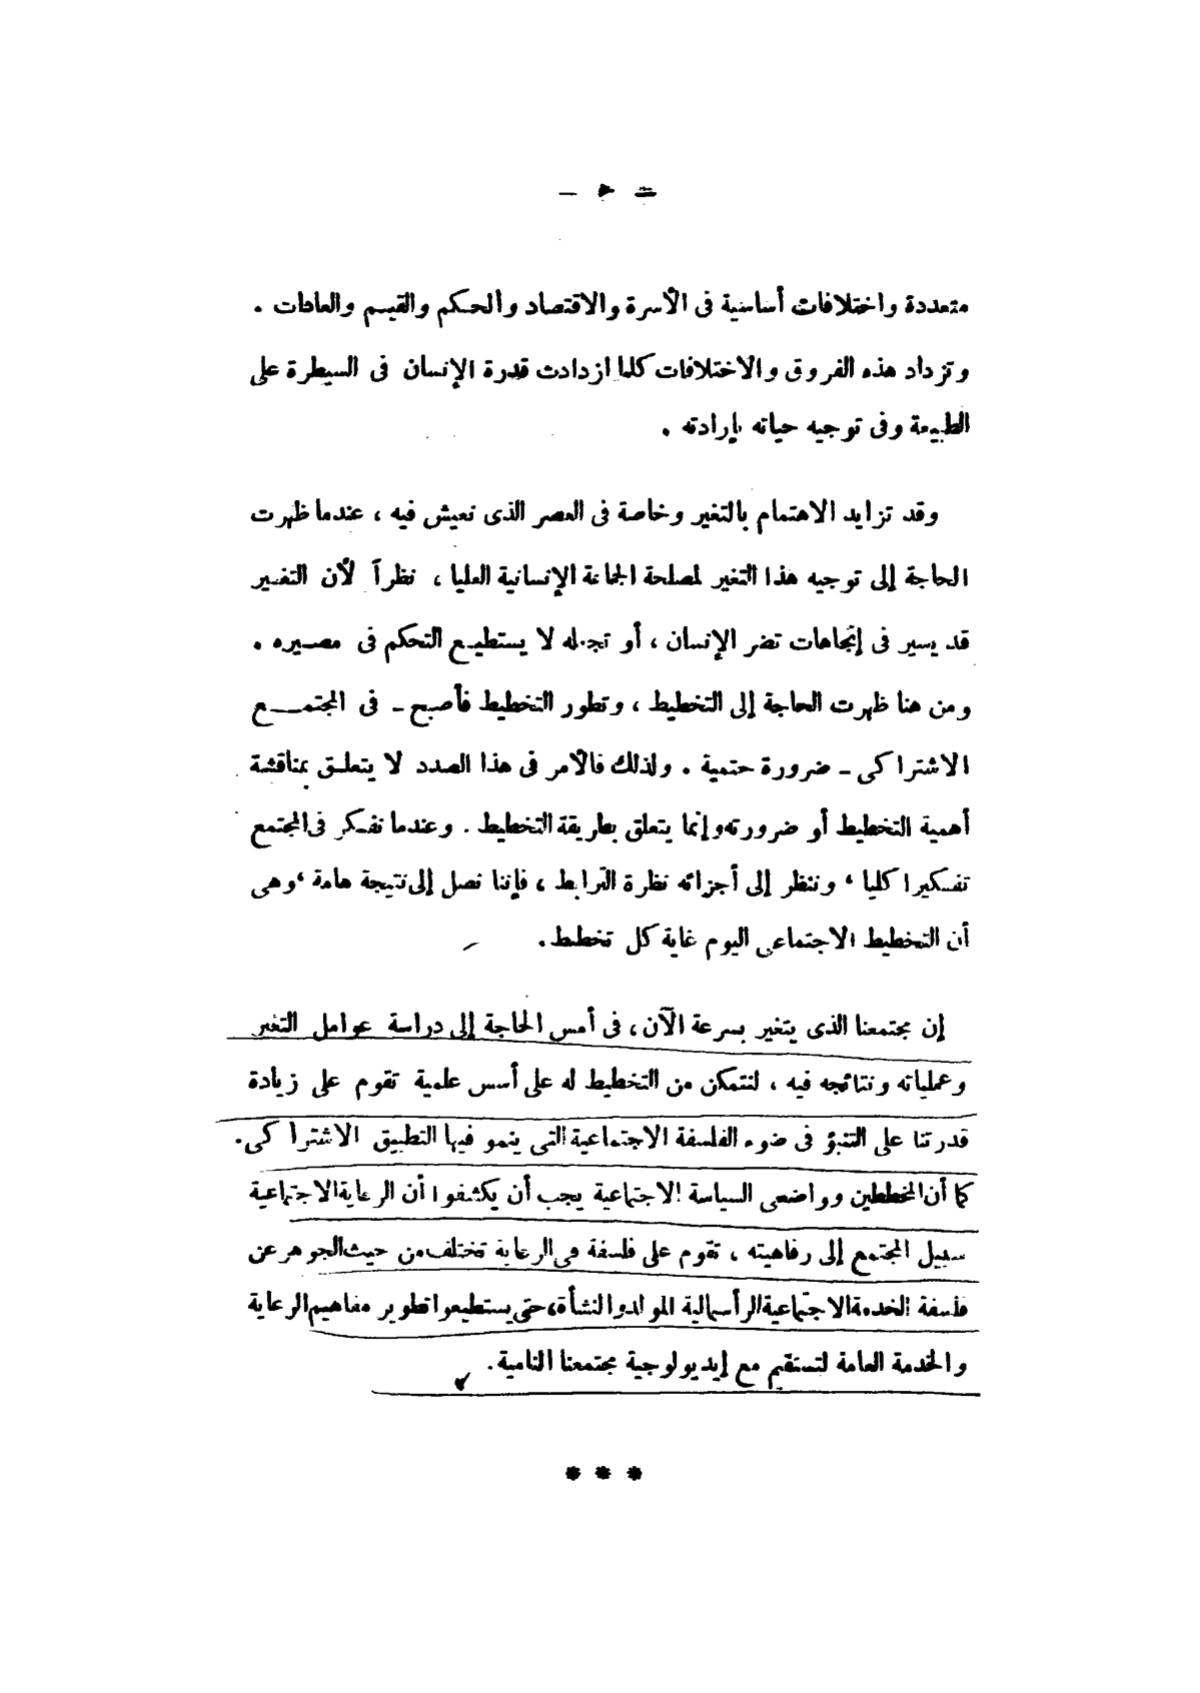 متعددة واختلافات أساسية فى الأسرة والاقتصاد والحكم والقيم والعادات .
وتزداد هذه الفروق والاختلافات كلما ازدادت قدرة الإنسان فى السيطرة على
الطبيعة وفى توجيه حياته بإرادته .
وقد تزايد الاهتمام بالتغير وخاصة فى العصر الذى نعيش فيه ، عندما ظهرت
الحاجة إلى توجيه هذا التغير لمصلحة الجماعة الإنسانية العليا ، نظراً لأن التغير
قد يسير فى إتجاهات تضر الإنسان ، أو تجعله لا يستطيع التحكم فى مصيره .
ومن هنا ظهرت الحاجة إلى التخطيط ، وتطور التخطيط فأصبح - فى المجتمع
الاشتراكى - ضرورة حتمية . ولذلك فالأمر فى هذا الصدد لا يتعلق بمناقشة
أهمية التخطيط أو ضرورته وإنما يتعلق بطريقة التخطيط . وعندما نفكر فى المجتمع
تفكيرا كليا ، وننظر إلى أجزائه نظرة الترابط ، فإننا نصل إلى نتيجة هامة ، وهى
أن التخطيط الاجتماعى اليوم غاية كل تخطيط .
إن مجتمعنا الذى يتغير بسرعة الآن ، فى أمس الحاجة إلى دراسة عوامل التغير
وعملياته ونتائجه فيه ، لنتمكن من التخطيط له على أسس علمية تقوم على زيادة
قدرتنا على التنبؤ فى ضوء الفلسفة الاجتماعية التى ينمو فيها التطبيق الاشتراكى .
كما أن المخططين وواضعى السياسة الاجتماعية يجب أن يكشفوا أن الرعاية الاجتماعية
سبيل المجتمع إلى رفاهيته ، تقوم على فلسفة فى الرعاية تختلف من حيث الجوهر عن
فلسفة الخدمة الاجتماعية الرأسمالية المولد والنشأة ، حتى يستطيعوا تطوير مفاهيم الرعاية
والخدمة العامة لتستقيم مع إيديولوجية مجتمعنا النامية .
* * *